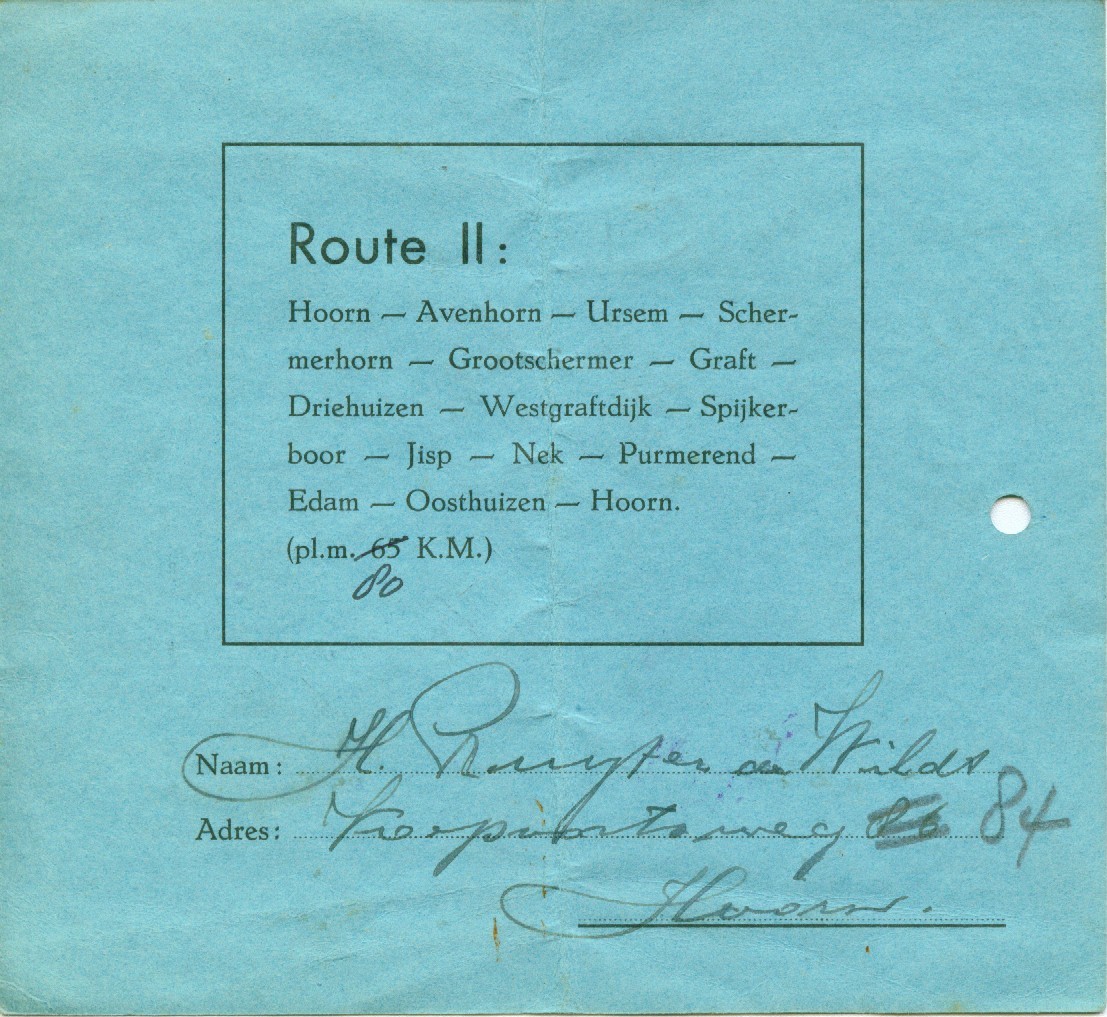 Route II:
Hoorn — Avenhorn — Ursem — Scher-
merhorn — Grootschermer — Graft —
Driehuizen — Westgraftdijk — Spijker-
boor — Jisp — Nek — Purmerend —
Edam — Oosthuizen — Hoorn.
(pl.m. 65 K.M.)
80
Naam: H. Ruyter de Wildt
Adres: Koepoortsweg 84
Hoorn.